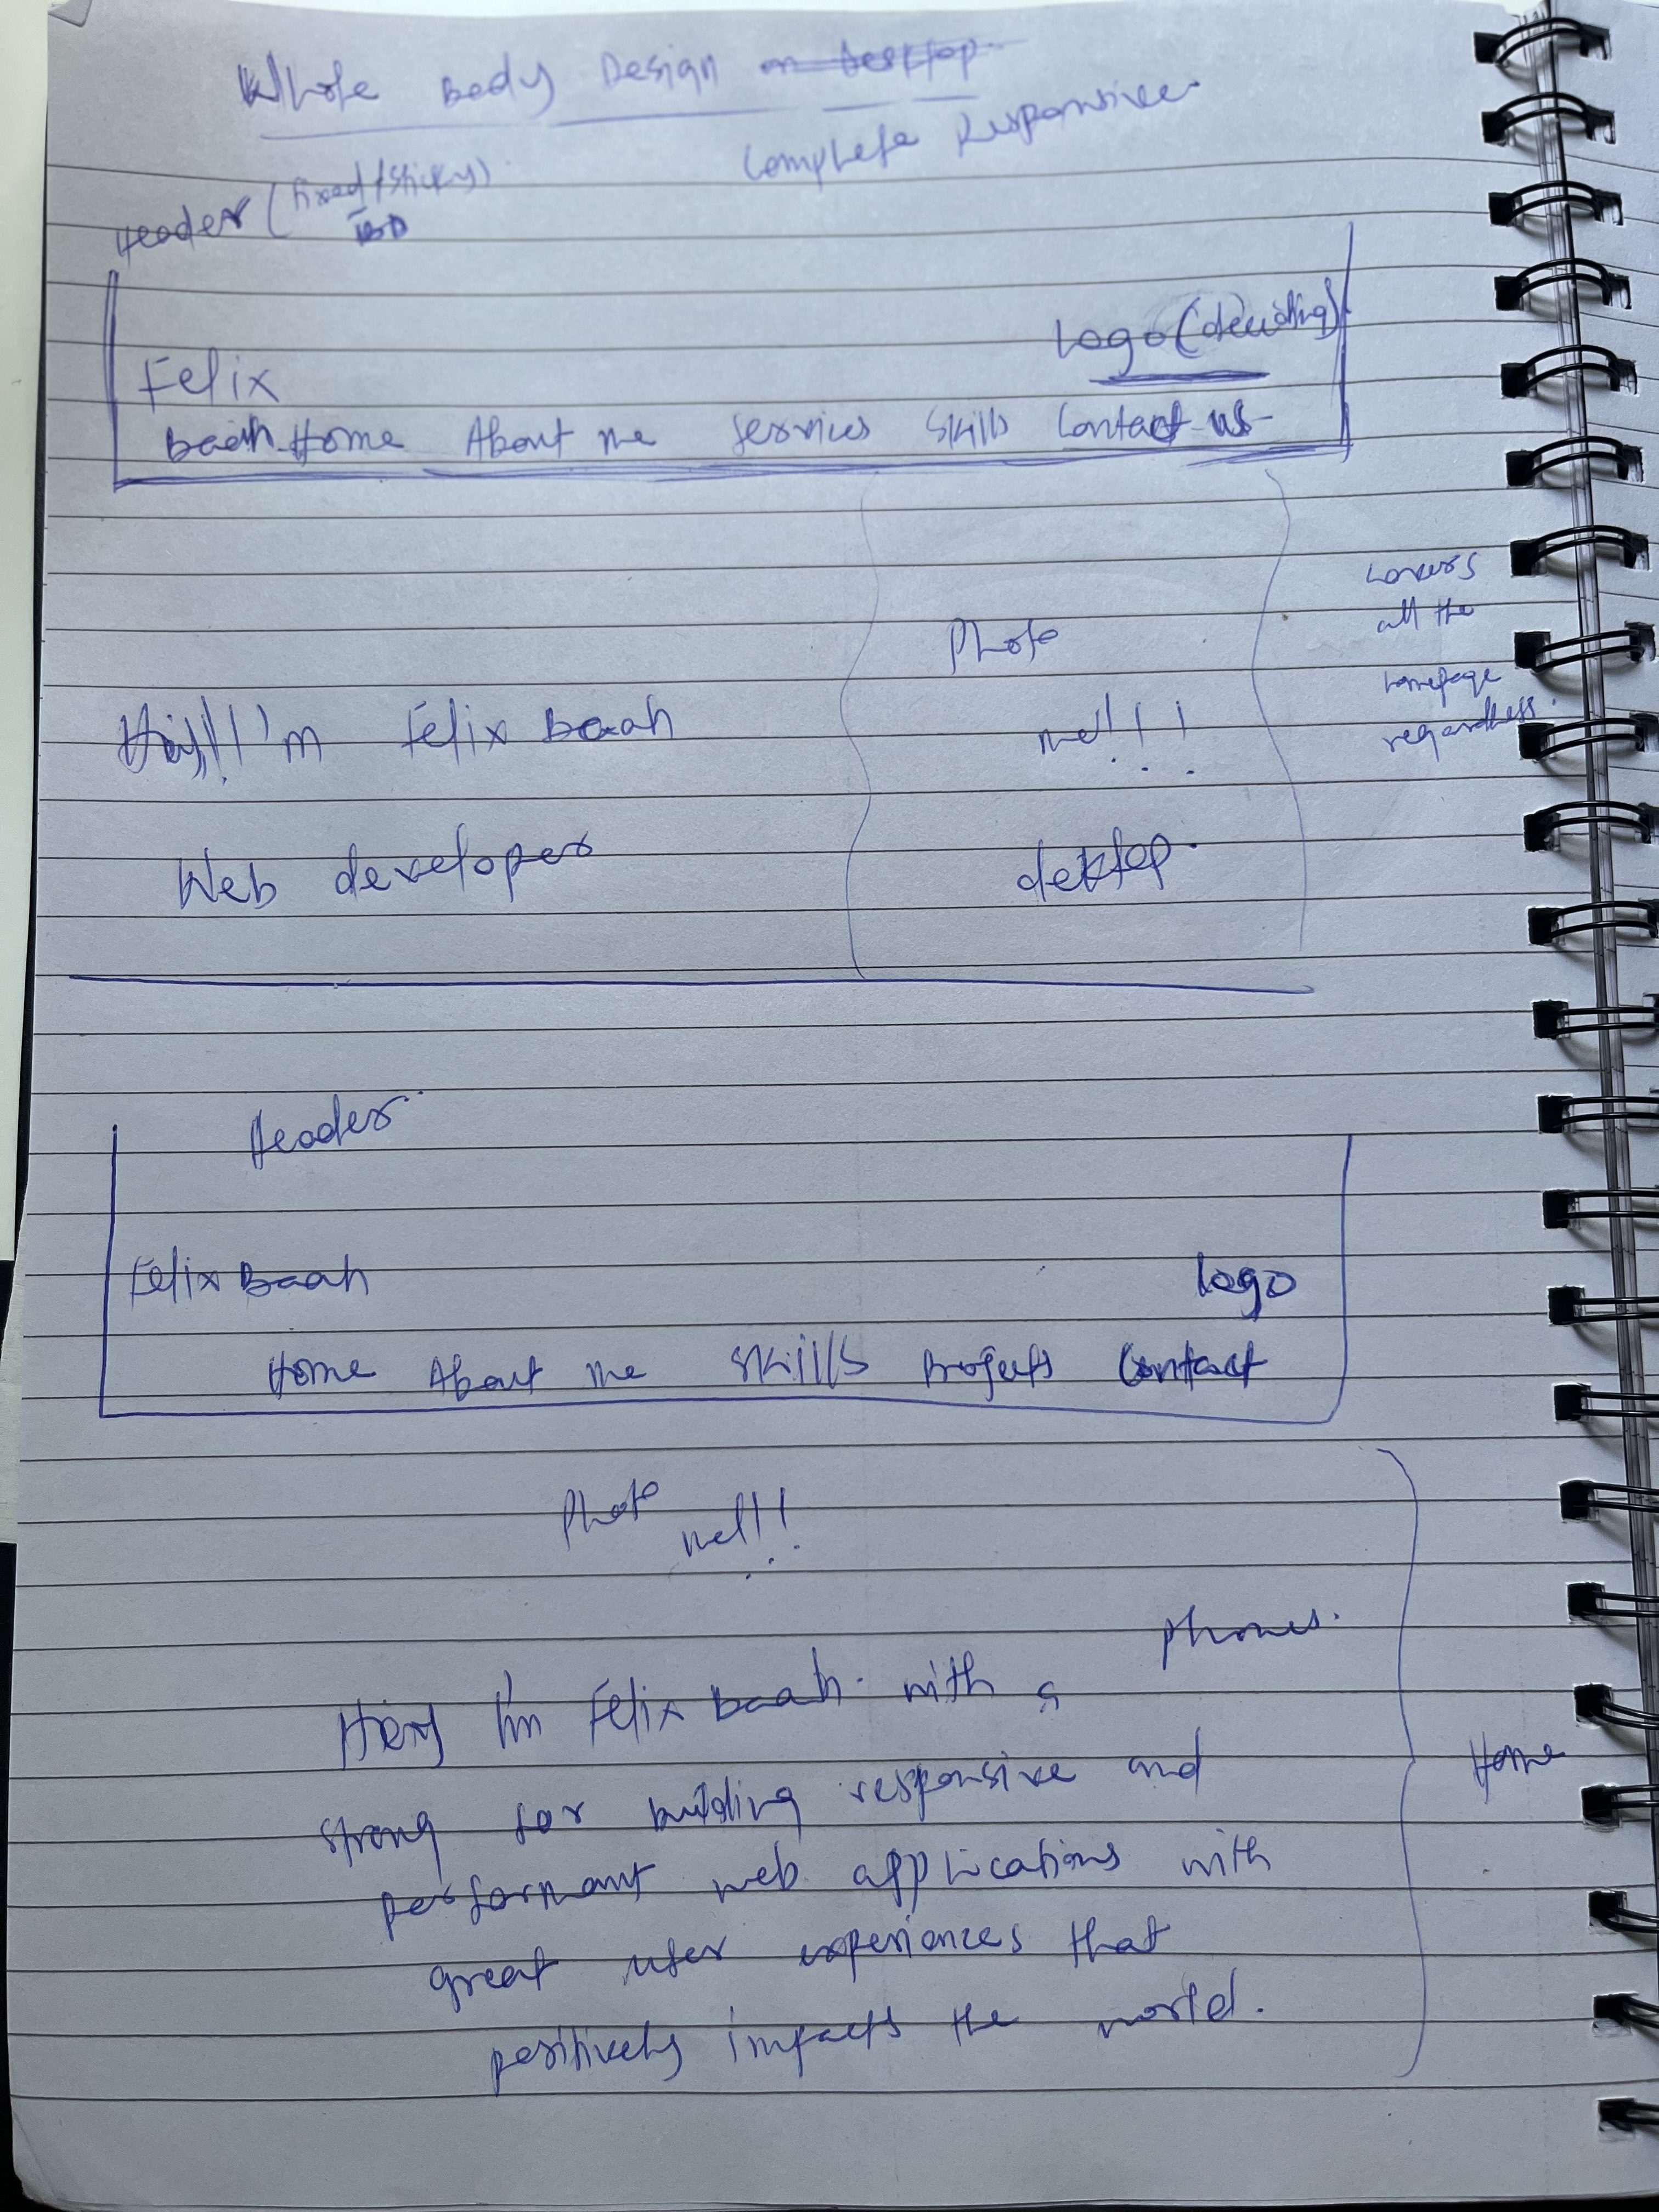 Whole Body Design on Desktop
Complete Responsive.
Header (fixed/sticky)
TBD
Logo (deciding)
Felix
Baah Home About me Services Skills Contact us
Covers
all the
homepage
regardless.
Photo
me!!!
Hey!! I'm Felix Baah
Web developer
dektop.
Header
Felix Baah
Logo
Home About me Skills Projects Contact
Photo
me!!!
phones.
Hey I'm Felix Baah. with a
strong for building responsive and
Home
performant web applications with
great user experiences that
positively impacts the world.